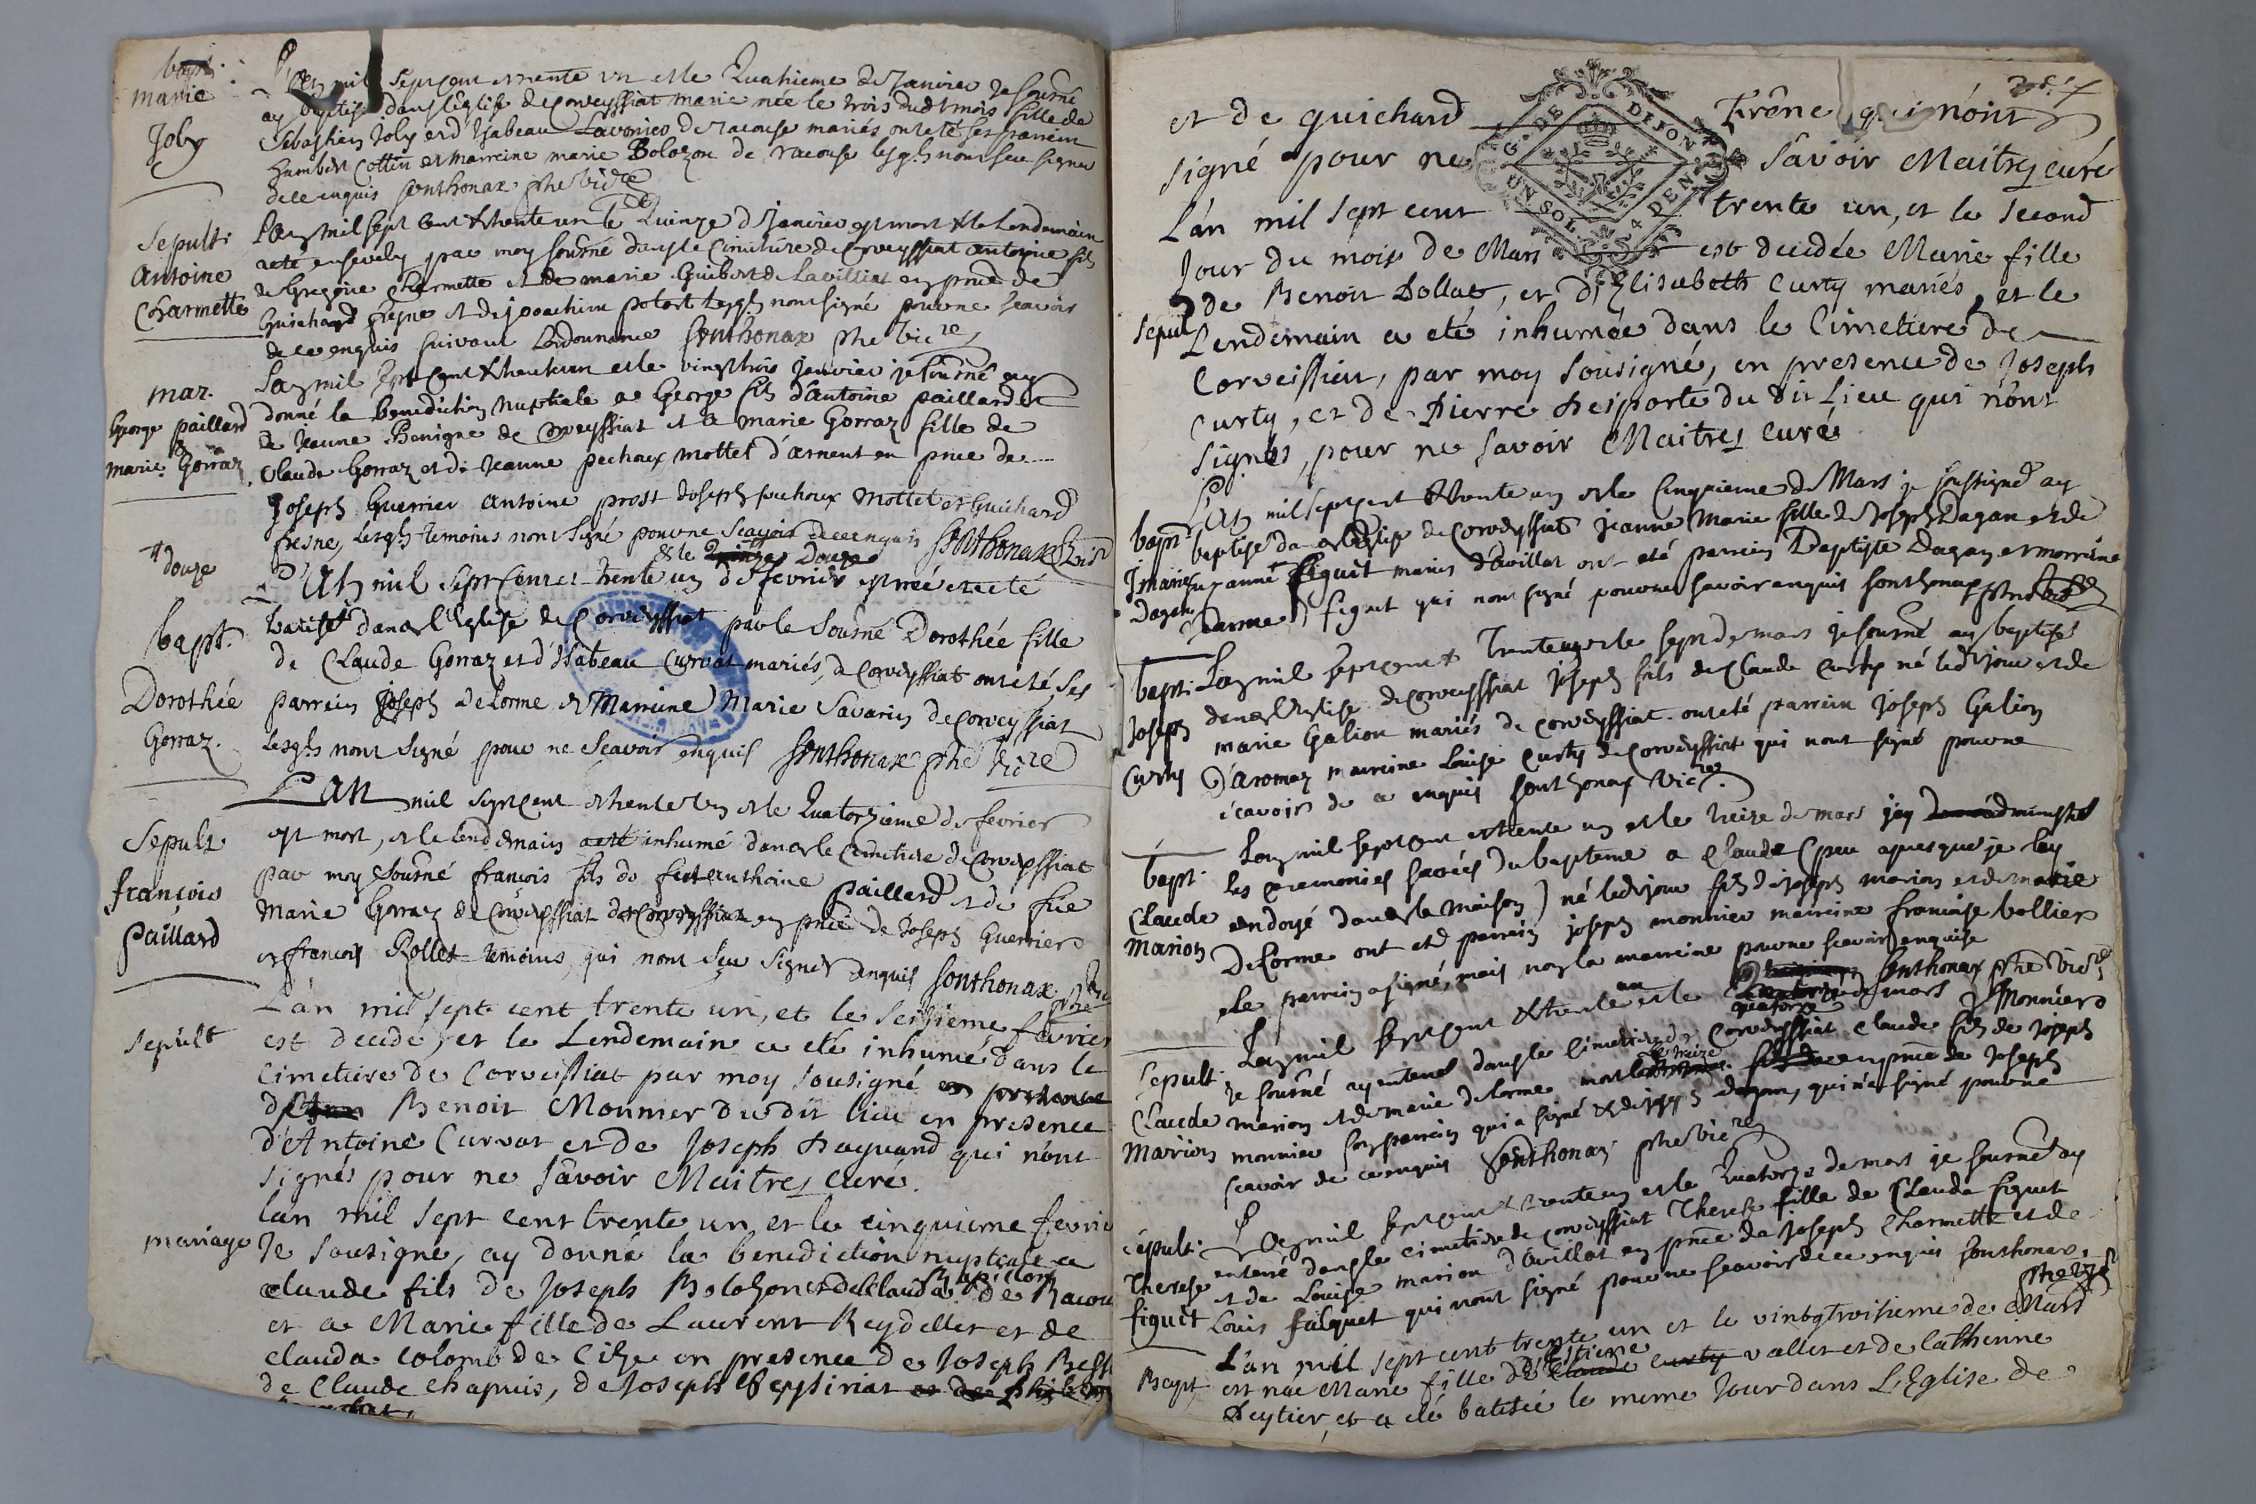 bapt.
marie
Joly
L'an mil sept cent et trente un et le Quatrieme de Janvier je soussné
ay baptisé dans l'église de Corveyssiat marie née le trois dudt mois fille de
Sebastien Joly et d'Isabeau Savarien de racouse mariés ont eté ses parrein
humbert Cottin et marreine marie Bolozon de racouse lesqls nont sceu signer
de ce enquis Sonthonax ptre vicre
Sepult.
antoine
Charmette
L'an mil sept cent & trente un le Quinze de Janvier est mort & le lendemain
a eté enseveli par moy soussné dans le Cimetiere de Corveyssiat antoine fils
de Gregoire Charmette et de marie Guibert de Lavilliat en pnce de
Guichard fresne et de joachim potort lesqls nont signé pour ne sçavoir
de ce enquis suivant l'ordonnance Sonthonax ptre vicre
mar.
George paillard
&
marie Gorraz
L'an mil sept cent & trente un et le vingt trois janvier je soussné ay
donné la benediction nuptiale a George fils d'antoine paillard et
de jeanne Benigne de Corveyssiat et a marie Gorraz fille de
Claude Gorraz et de Jeanne pechoux mottet d'arnent en pnce de
Joseph Guerrier antoine prost Joseph pechoux mottet et Guichard
fresne, lesqls temoins nont signé pour ne sçavoir de ce enquis Sonthonax
douze
& le Quinze Douze
L'An mil sept cent et trente un de fevrier est née et a eté
batisée dans l'Eglise de Corveyssiat par le soussné Dorothée fille
bapt.
Dorothée
Gorraz.
de Claude Gorraz et d'Isabeau Curvat mariés, de Corveyssiat ont eté ses
parrein Joseph delorme et Marreine Marie Savarin de Corveyssiat
lesqls nont signé pour ne sçavoir enquis Sonthonax ptre vicre
Sepult.
françois
paillard
L'An mil sept cent et trente un et le Quatorzieme de fevrier
est mort, et le lendemain a eté inhumé dans le Cimetiere de Corveyssiat
par moy soussné françois fils de feu anthoine paillard et de feüe
Marie Gorraz de Corveyssiat de Corveyssiat en pnce de Joseph Guerrier
et françois Rollet temoins, qui nont sçu signer enquis Sonthonax ptre
sepult
L'an mil sept cent trente un, et le seisieme fevrier
est decidé, et le Lendemain a eté inhumé dans le
Cimetiere de Corveissiat par moy sousigné en presence
Benoit Monnier du dit lieu en presence
d'Antoine Curvat et de Joseph Daguand qui n'ont
signés pour ne savoir Maitres curé.
mariage
lan mil sept cent trente un, et le cinquieme fevrier
Je sousigné, ay donné la benediction nuptiale a
claude fils de Joseph Bolozon et de Clauda de Racou
et a Marie fille de Laurent Reydellet et de
clauda colomb de Cize en presence de Joseph
de Claude chapuis, de Joseph Peysiriat et de
et de guichard Frêne qui n'ont
signé pour ne savoir Maitres curé
G. DE DIJON
UN. SOL. 4 DEN.
L'an mil sept cent trente un, et le second
Jour du mois de Mars est decidée Marie fille
de Benoit Dollat, et d'Elisabeth Curty mariés, et le
Sepul
Lendemain a eté inhumée dans le Cimetiere de
Corveissiat, par moy sousigné, en presence de Joseph
Curty, et de Pierre Desporte du dit Lieu qui n'ont
signés, pour ne savoir Maitres curé
bapt
Jmarie
Dagan
L'An mil sept cent & trente un et le Cinquieme de Mars je soussigné ay
baptisé dans l'Eglise de Corveyssiat jeanne Marie fille de Joseph Dagan et de
anne figuet mariés d'avillat ont eté parrein Baptiste Dagan et marreine
figuet qui nont signé pour ne savoir enquis Sonthonax ptre
bapt.
Joseph
Curty
L'an mil sept cent & trente un et le sept de mars je soussné ay baptisé
dans l'Eglise de Corveyssiat joseph fils de Claude Curty né ledt jour et de
marie Galion mariés de Corveyssiat ont eté parrein joseph Galion
d'aromaz marreine Louise Curty de Corveyssiat qui nont signé pour ne
scavoir de ce enquis Sonthonax vicre
bapt.
Claude
Marion
L'an mil sept cent et trente un et le treize de mars jay administré
les ceremonies sacrées du bapteme a Claude (peu apres que je lay
ondoyé dans la maison) né ledt jour fils de joseph marion et de marie
Delorme ont eté parrein joseph monnier marreine françoise vollier
le parrein a signé, mais non la marreine pour ne scavoir enquise
Sonthonax ptre vicre
JMonnier
Sepult.
Claude
Marion
L'an mil sept cent & trente un et le quatorze de mars
je soussné ay enterré dans le Cimetiere de Corveyssiat claude fils de joseph
marion et de marie delorme mort le treize en pnce de Joseph
monnier son parrein qui a signé & de dagan, qui n'a signé pour ne
scavoir de ce enquis Sonthonax ptre vicre
sépult.
Therese
figuet
L'an mil sept cent & trente un et le Quatorze de mars je soussné ay
enterré dans le cimetiere de Corveyssiat Therese fille de Claude figuet
et de Louise marion d'avillat en pnce de joseph Charmette et de
Louis falquet qui nont signé pour ne scavoir de ce enquis Sonthonax
ptre vicre
Bapt
L'an mil sept cent trente un et le vingt troisieme de Mars
est née Marie fille d'Estiene Claude Curty vallet et de Catherine
Peytier, et a eté batisée le meme Jour dans L'Eglise de